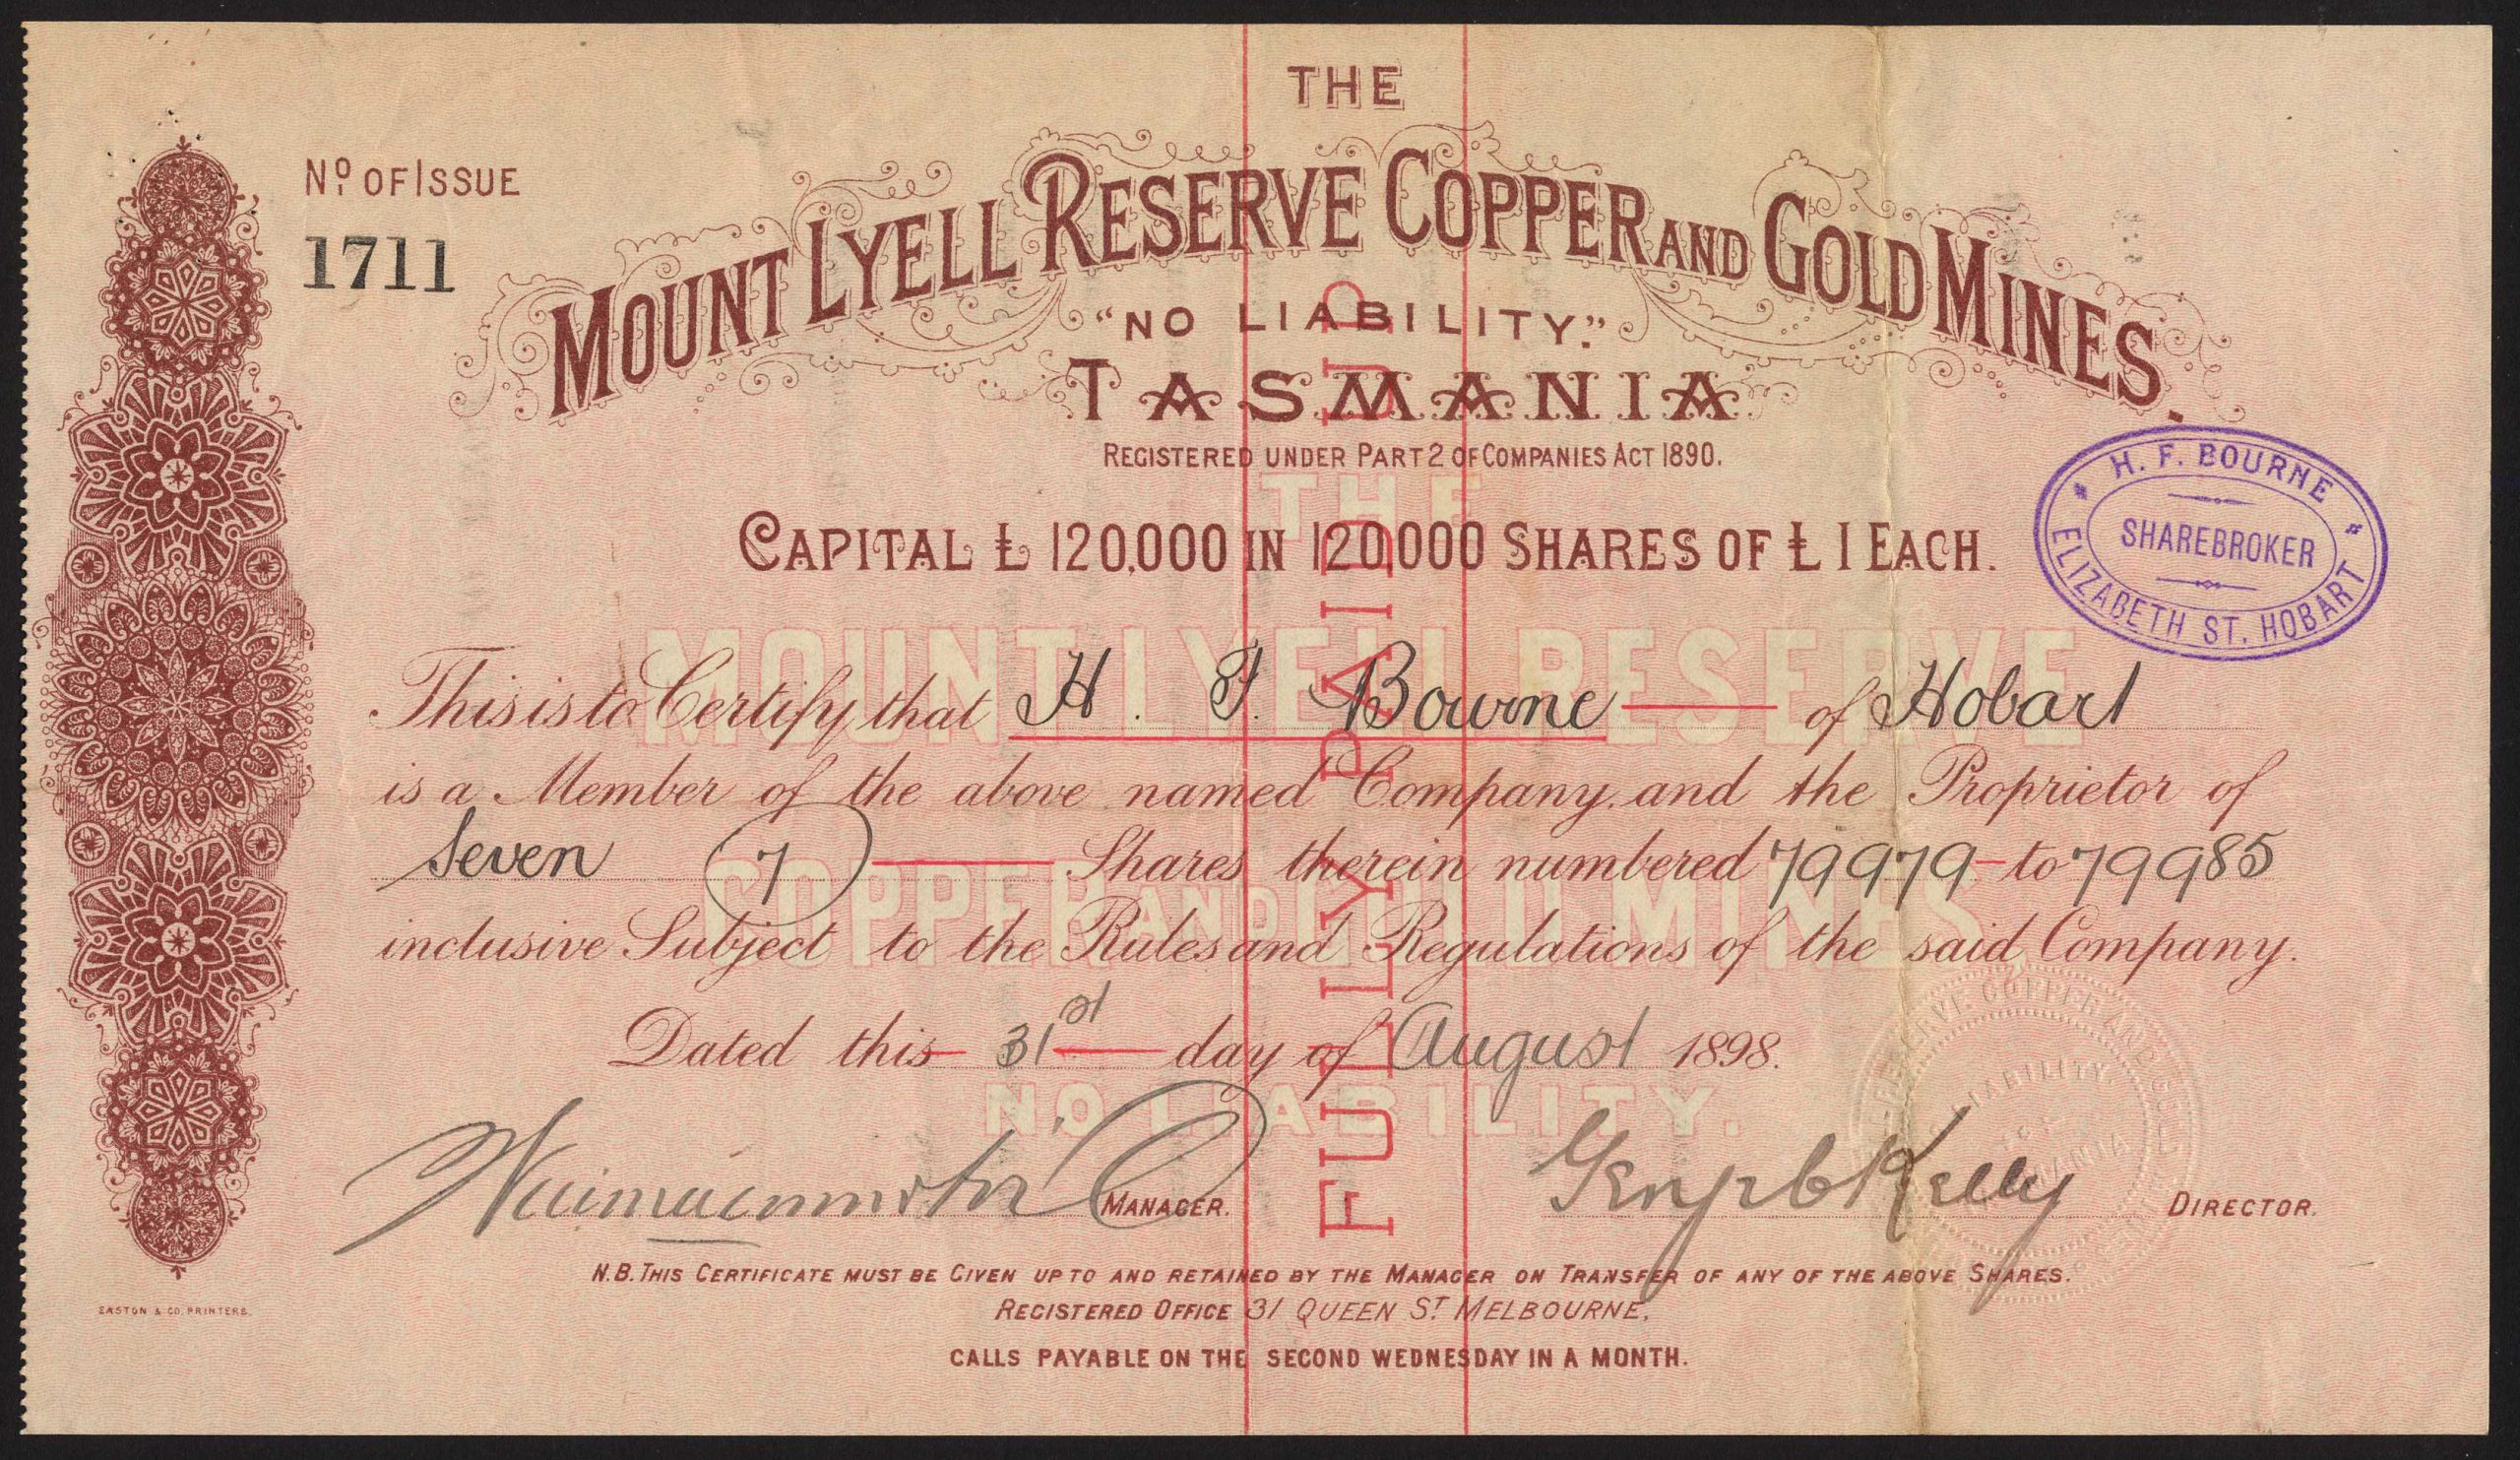 THE
MOUNT LYELL RESERVE COPPER AND GOLD MINES.
Nº. OF ISSUE
1711
"NO LIABILITY."
TASMANIA
REGISTERED UNDER PART 2 OF COMPANIES ACT 1890.
CAPITAL £ 120,000 IN 120,000 SHARES OF £ 1 EACH.
H. F. BOURNE
SHAREBROKER
ELIZABETH ST. HOBART
FULLY PAID UP
THE
MOUNT LYELL RESERVE
COPPER AND GOLD MINES
NO LIABILITY.
This is to Certify that H. F. Bourne of Hobart
is a Member of the above named Company, and the Proprietor of
Seven 7 Shares therein numbered 79979 - to 79985
inclusive Subject to the Rules and Regulations of the said Company.
Dated this 31st day of August 1898.
MANAGER.
Kelly DIRECTOR.
RESERVE COPPER AND
LIABILITY
N.B. THIS CERTIFICATE MUST BE GIVEN UP TO AND RETAINED BY THE MANAGER ON TRANSFER OF ANY OF THE ABOVE SHARES.
EASTON & CO. PRINTERS.
REGISTERED OFFICE 31 QUEEN ST MELBOURNE.
CALLS PAYABLE ON THE SECOND WEDNESDAY IN A MONTH.